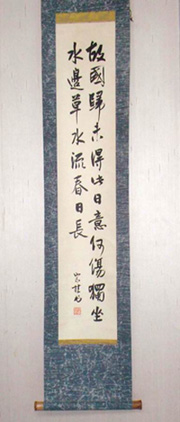 故國歸未得此日意何傷獨坐
水邊草水流春日長